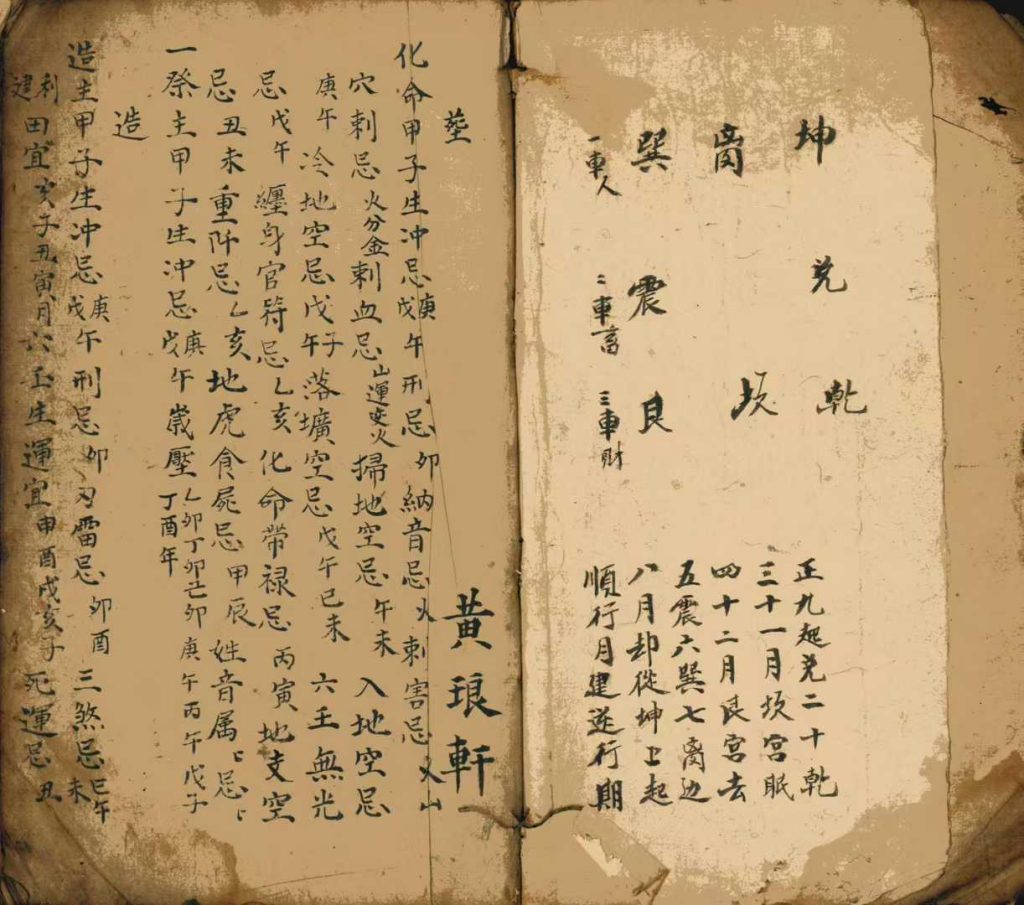 坤
兌
乾
离
坎
巽
震
艮
一車人
二車畜
三車財
正九起兌二十乾
三十一月坎宮眠
四十二月艮宮去
五震六巽七离边
八月却從坤上起
順行月建逆行期
黄琅軒
塟
化命甲子生冲忌庚戊午刑忌卯納音忌火刺害忌火山
穴刺忌火分金刺血忌山運变火掃地空忌午未入地空忌
庚午冷地空忌戊子午落壙空忌戊午己未六壬無光
忌戊午纒身官符忌乙亥化命帶禄忌丙寅地支空
忌丑未重阡忌乙亥地虎食屍忌甲辰姓音属忌
一祭主甲子生冲忌庚戊午歲壓乙卯丁卯亡卯庚午丙午戊子丁酉年
造
造主甲子生冲忌庚戊午刑忌卯刃雷忌卯酉三煞忌巳午未
利建田宜亥子丑寅月六壬生運宜申酉戌亥子死運忌丑